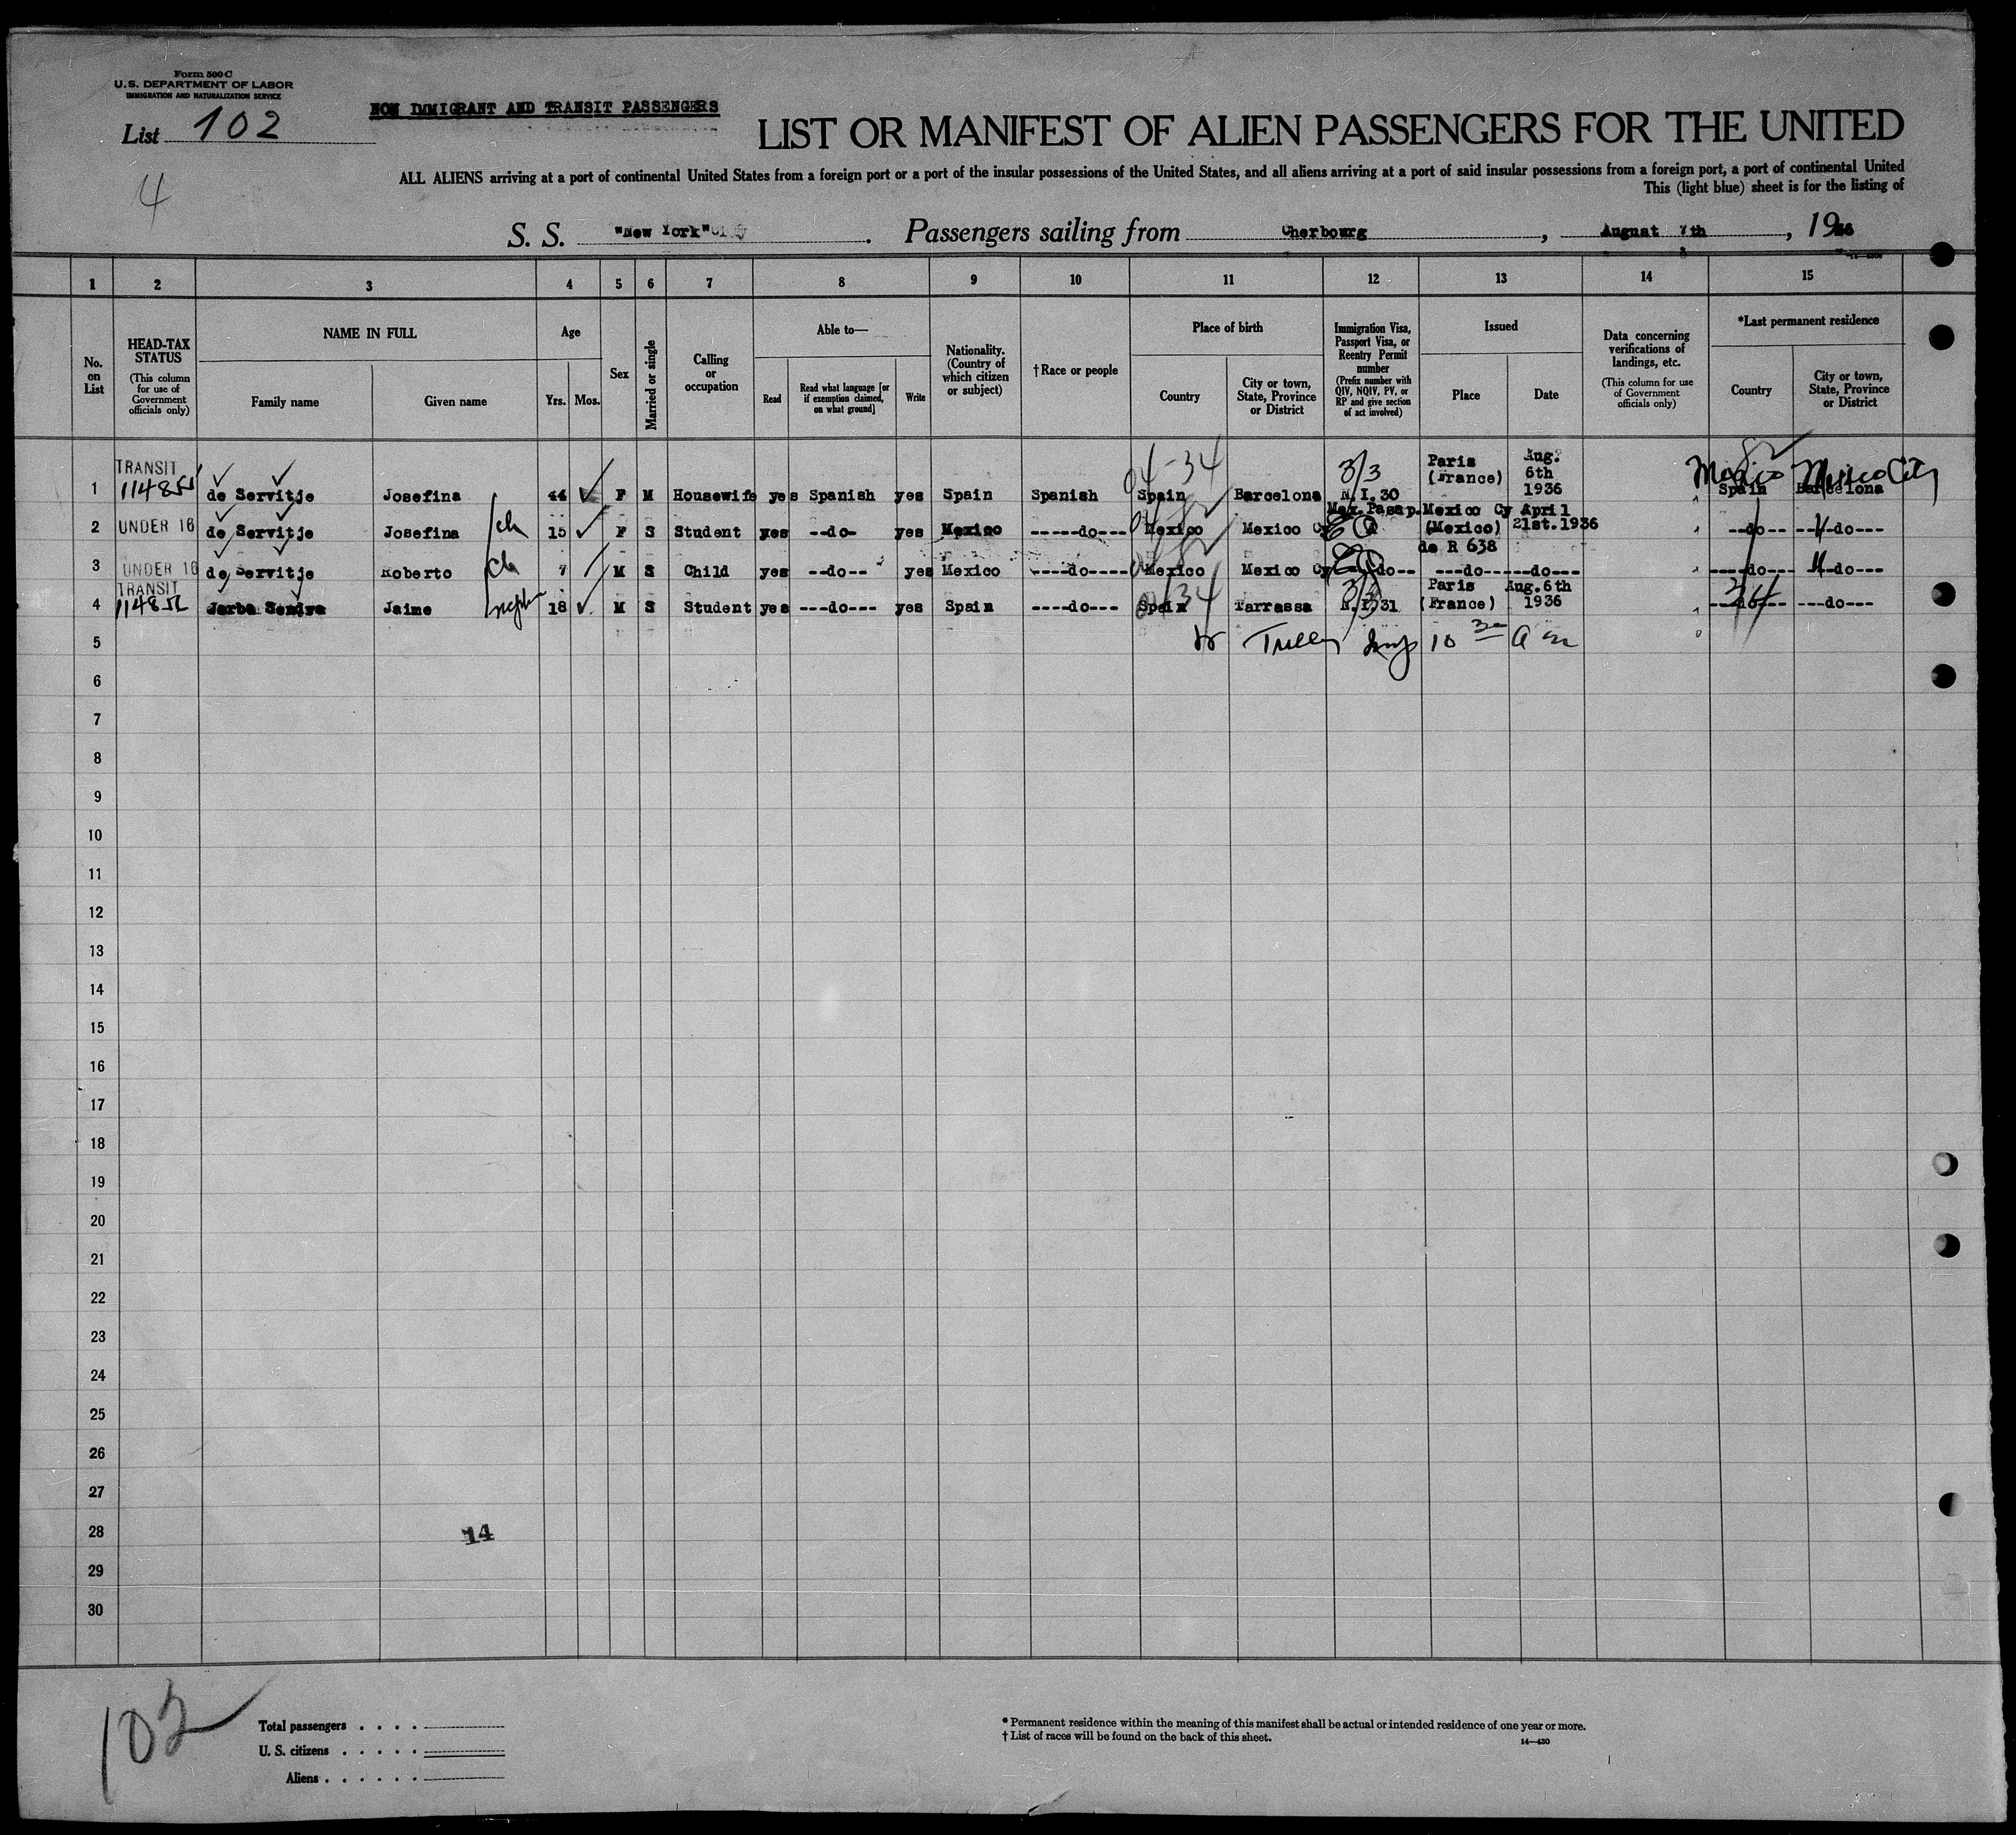 Form 500 C
U.S. DEPARTMENT OF LABOR
IMMIGRATION AND NATURALIZATION SERVICE
NON IMMIGRANT AND TRANSIT PASSENGERS
List 102
LIST OR MANIFEST OF ALIEN PASSENGERS FOR THE UNITED
4
ALL ALIENS arriving at a port of continental United States from a foreign port or a port of the insular possessions of the United States, and all aliens arriving at a port of said insular possessions from a foreign port, a port of continental United
This (light blue) sheet is for the listing of
S. S. "New York" Passengers sailing from Cherbourg, August 7th, 1936
1 2 3 4 5 6 7 8 9 10 11 12 13 14 15
No. on List
HEAD-TAX STATUS
(This column for use of Government officials only)
NAME IN FULL
Family name Given name
Age
Yrs. Mos.
Sex
Married or single
Calling or occupation
Able to—
Read
Read what language [or if exemption claimed, on what ground]
Write
Nationality. (Country of which citizen or subject)
† Race or people
Place of birth
Country
City or town, State, Province or District
Immigration Visa, Passport Visa, or Reentry Permit number
(Prefix number with QIV, NQIV, PV, or RP and give section of act involved)
Issued
Place Date
Data concerning verifications of landings, etc.
(This column for use of Government officials only)
*Last permanent residence
Country
City or town, State, Province or District
04-34 3/3 Mexico Mexico City
1 TRANSIT de Servitje Josefina 44 F M Housewife yes Spanish yes Spain Spanish Spain Barcelona N.I.30 Paris (France) Aug. 6th 1936 Spain Barcelona
2 UNDER 16 de Servitje Josefina ch 15 F S Student yes --do- yes Mexico -----do--- Mexico Mexico Cy Mex.Passp. Mexico Cy (Mexico) April 21st.1936 --do-- ---do---
de R 638
3 UNDER 16 de Servitje Roberto ch 7 M S Child yes --do-- yes Mexico ----do---- Mexico Mexico Cy do-- ---do-- ---do--- ----do--- --do---
4 TRANSIT 114852 Jaime nephew 18 M S Student yes ---do--- yes Spain ----do--- Spain Tarrassa N.I.31 Paris (France) Aug.6th 1936 ---do--- ---do---
5
6
7
8
9
10
11
12
13
14
15
16
17
18
19
20
21
22
23
24
25
26
27
28
14
29
30
102
Total passengers
U. S. citizens
Aliens
* Permanent residence within the meaning of this manifest shall be actual or intended residence of one year or more.
† List of races will be found on the back of this sheet.
14—430